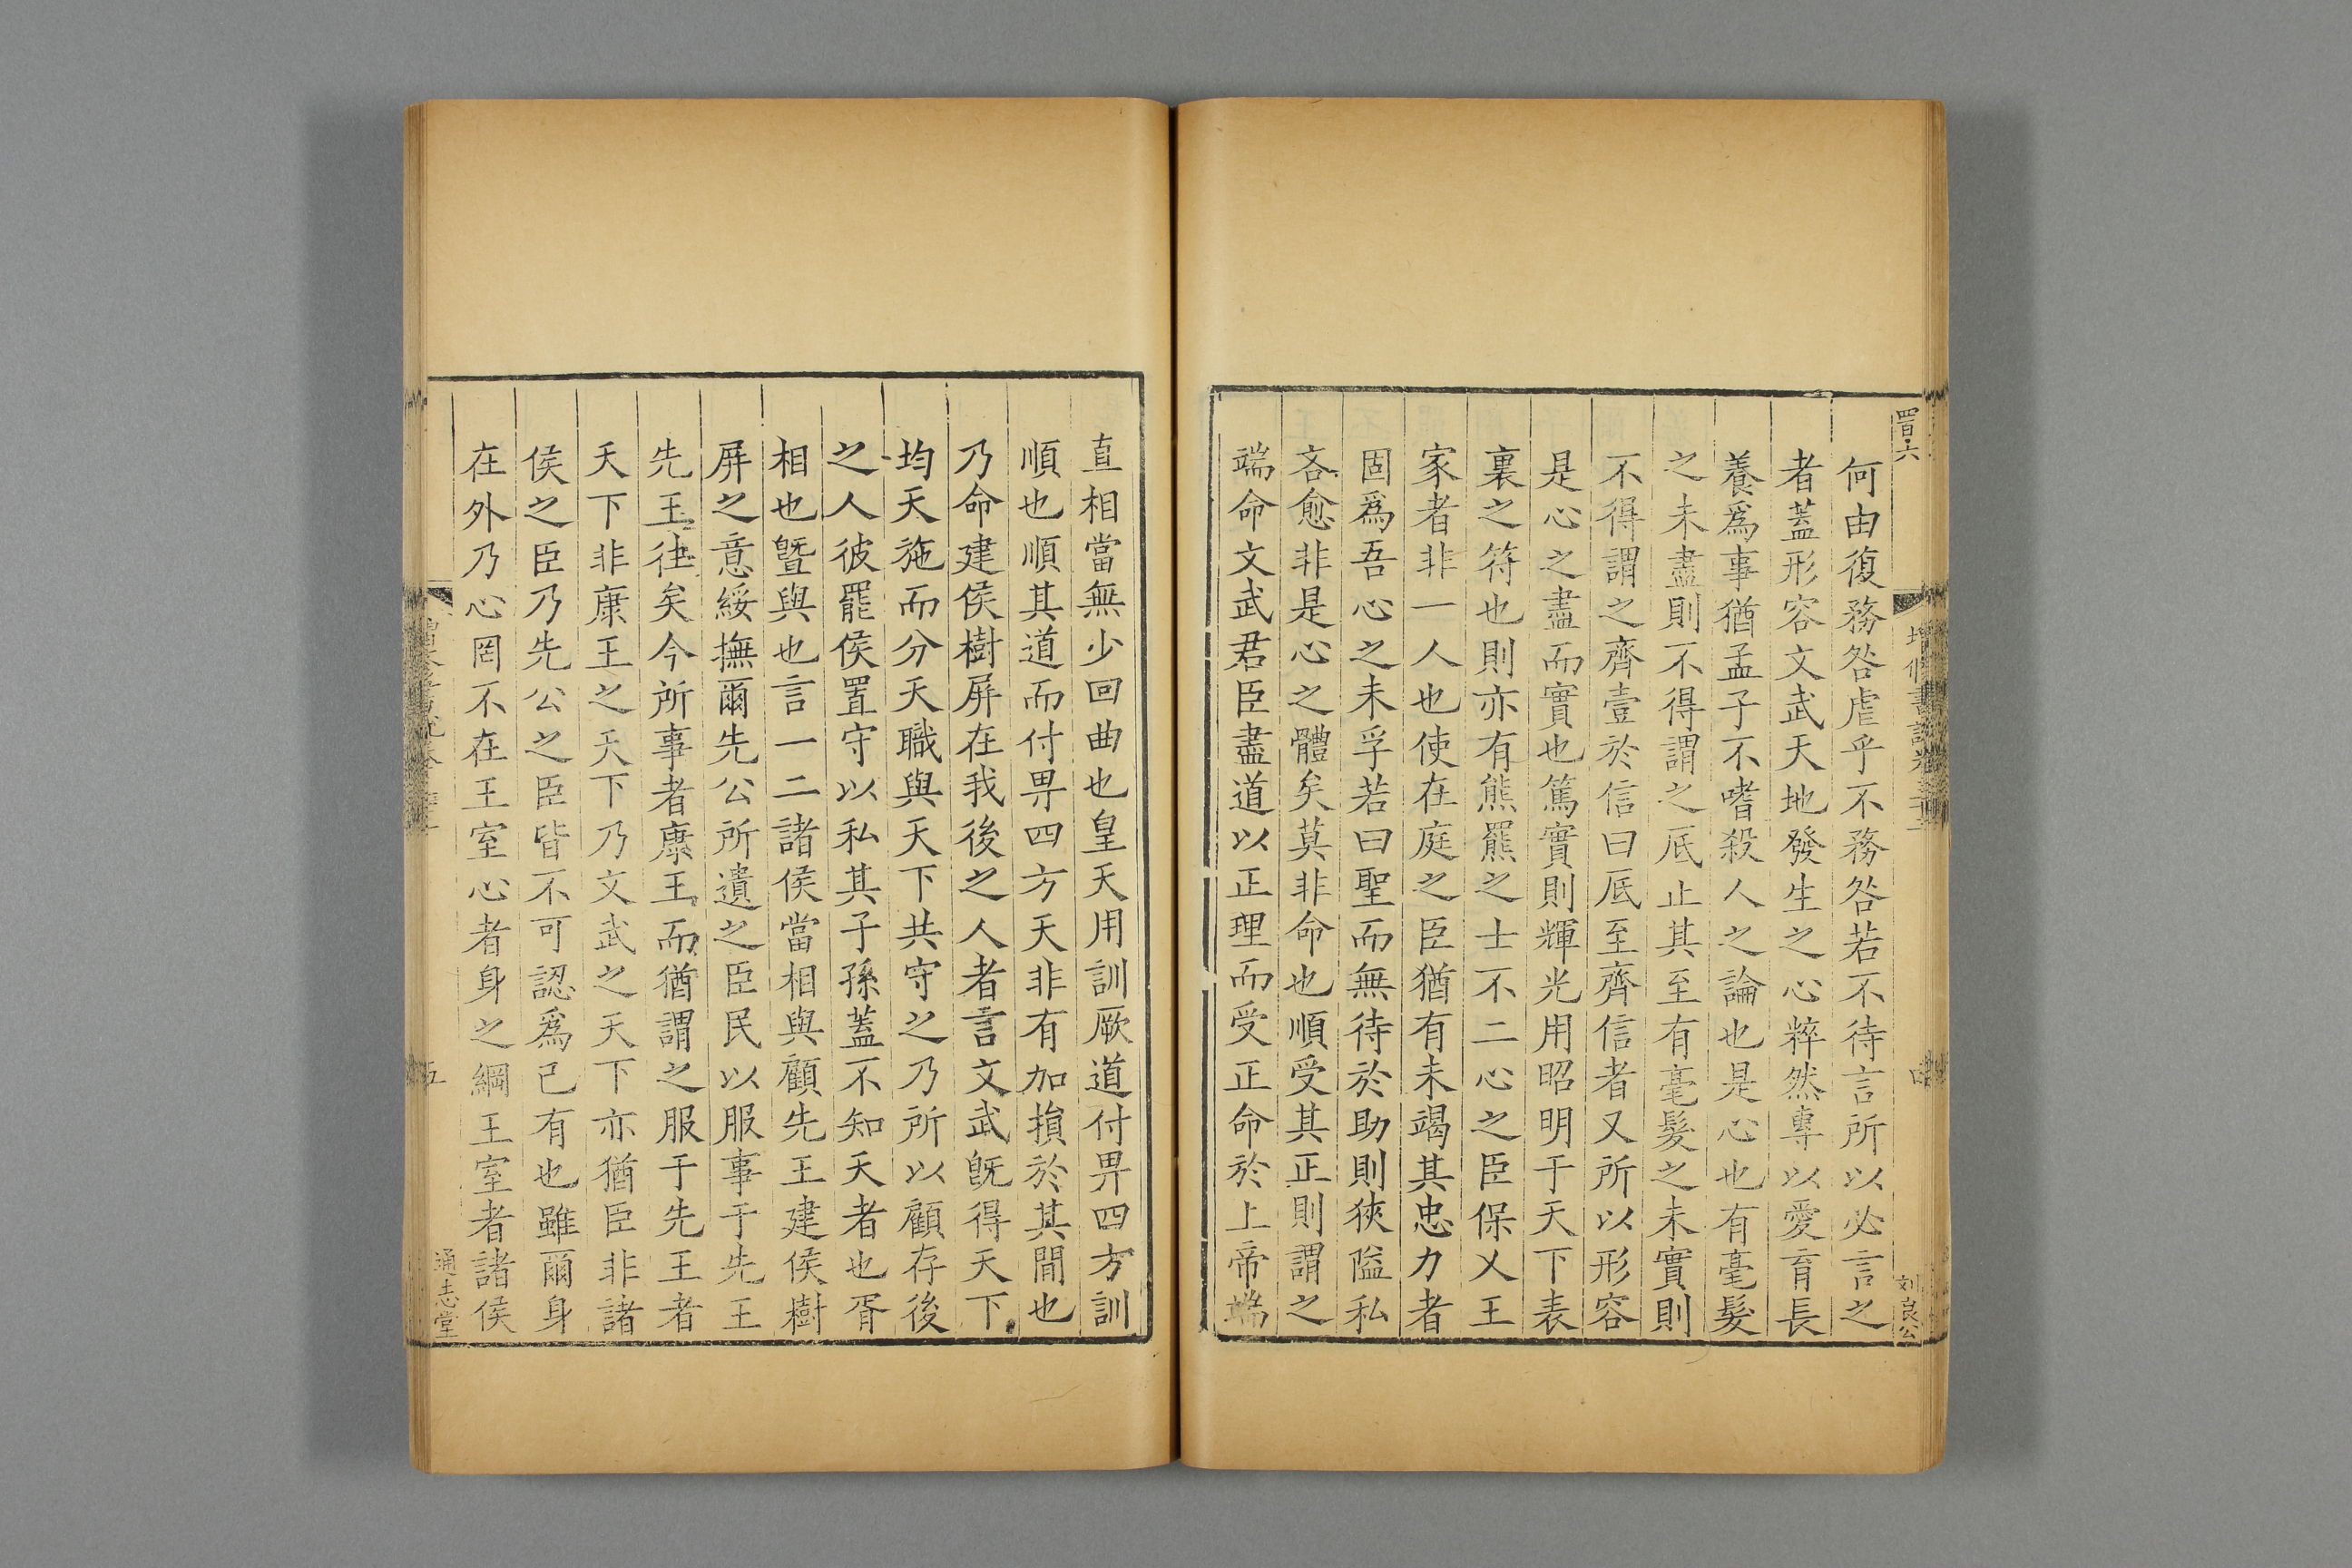 何由復務咎虐乎不務咎若不待言所以必言之
者蓋形容文武天地發生之心粹然專以愛育長
養爲事猶孟子不嗜殺人之論也是心也有毫髮
之未盡則不得謂之厎止其至有毫髮之未實則
不得謂之齊壹於信曰厎至齊信者又所以形容
是心之盡而實也篤實則輝光用昭明于天下表
裏之符也則亦有熊羆之士不二心之臣保乂王
家者非一人也使在庭之臣猶有未竭其忠力者
固爲吾心之未孚若曰聖而無待於助則狹隘私
吝愈非是心之體矣莫非命也順受其正則謂之
端命文武君臣盡道以正理而受正命於上帝端
直相當無少回曲也皇天用訓厥道付畀四方訓
順也順其道而付畀四方天非有加損於其間也
乃命建侯樹屏在我後之人者言文武旣得天下
均天施而分天職與天下共守之乃所以顧存後
之人彼罷侯置守以私其子孫蓋不知天者也胥
相也曁與也言一二諸侯當相與顧先王建侯樹
屏之意綏撫爾先公所遺之臣民以服事于先王
先王往矣今所事者康王而猶謂之服于先王者
天下非康王之天下乃文武之天下亦猶臣非諸
侯之臣乃先公之臣皆不可認爲己有也雖爾身
在外乃心罔不在王室心者身之綱王室者諸侯
五
通志堂